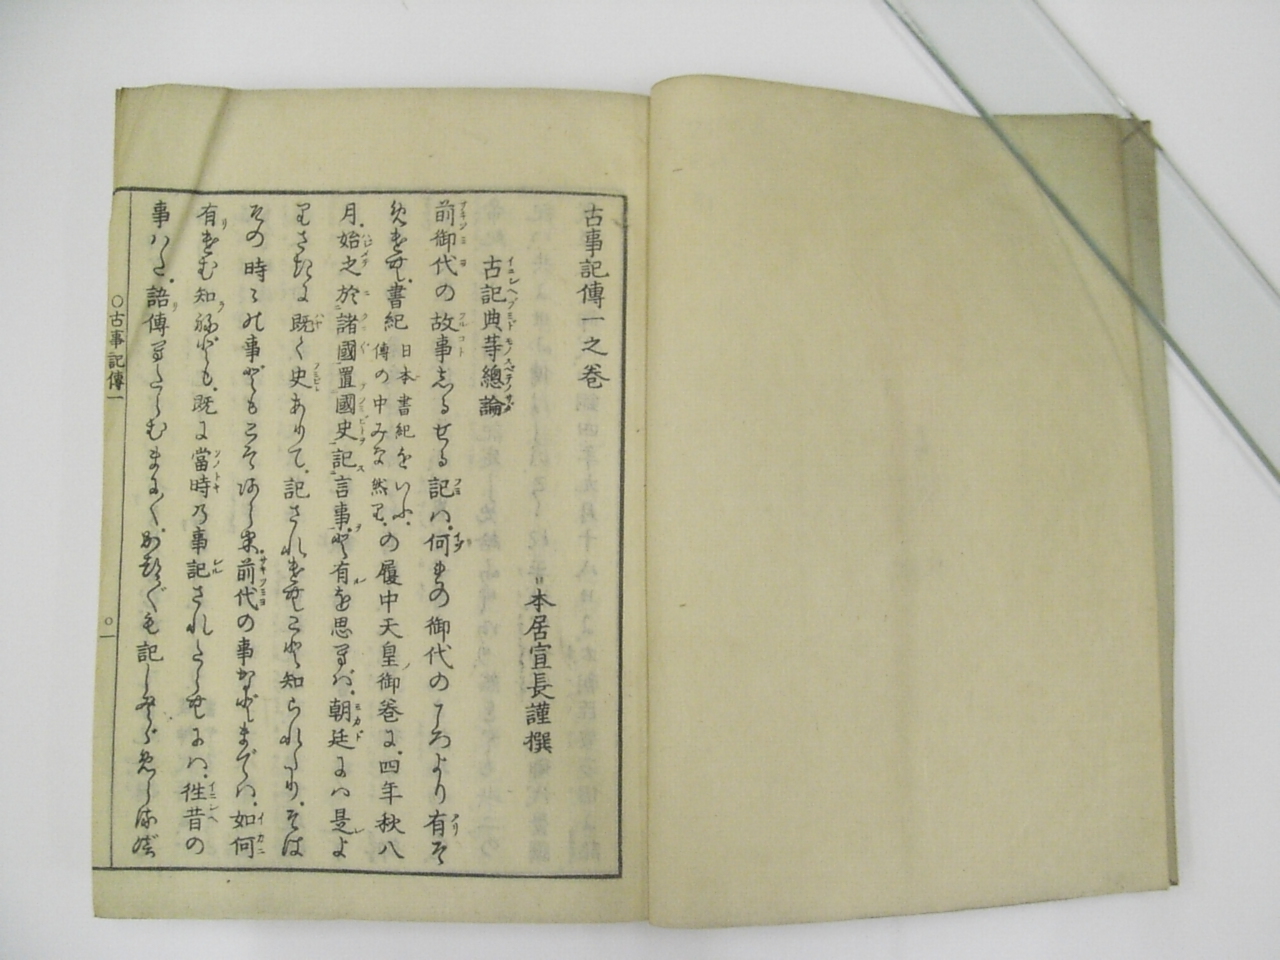 古事記傳一之卷
本居宣長謹撰
古記典等總論
前御代の故事しるせる記は、何れの御代のころより有そ
めけむ、書紀 日本書紀をいふ、傳の中みな然り、の履中天皇御卷に、四年秋八
月、始之於諸國置國史記言事、と有を思へば、朝廷には是よ
りさきに既く史ありて、記されけむこと知られたり、そは
その時々の事どもこそあらめ、前代の事などまでは、如何
有けむ知ねども、既に當時の事記されたらむには、往昔の
事はた、語傳へたらむまに〱、かつ〲も記しとゞめらるべ
○古事記傳一
○一